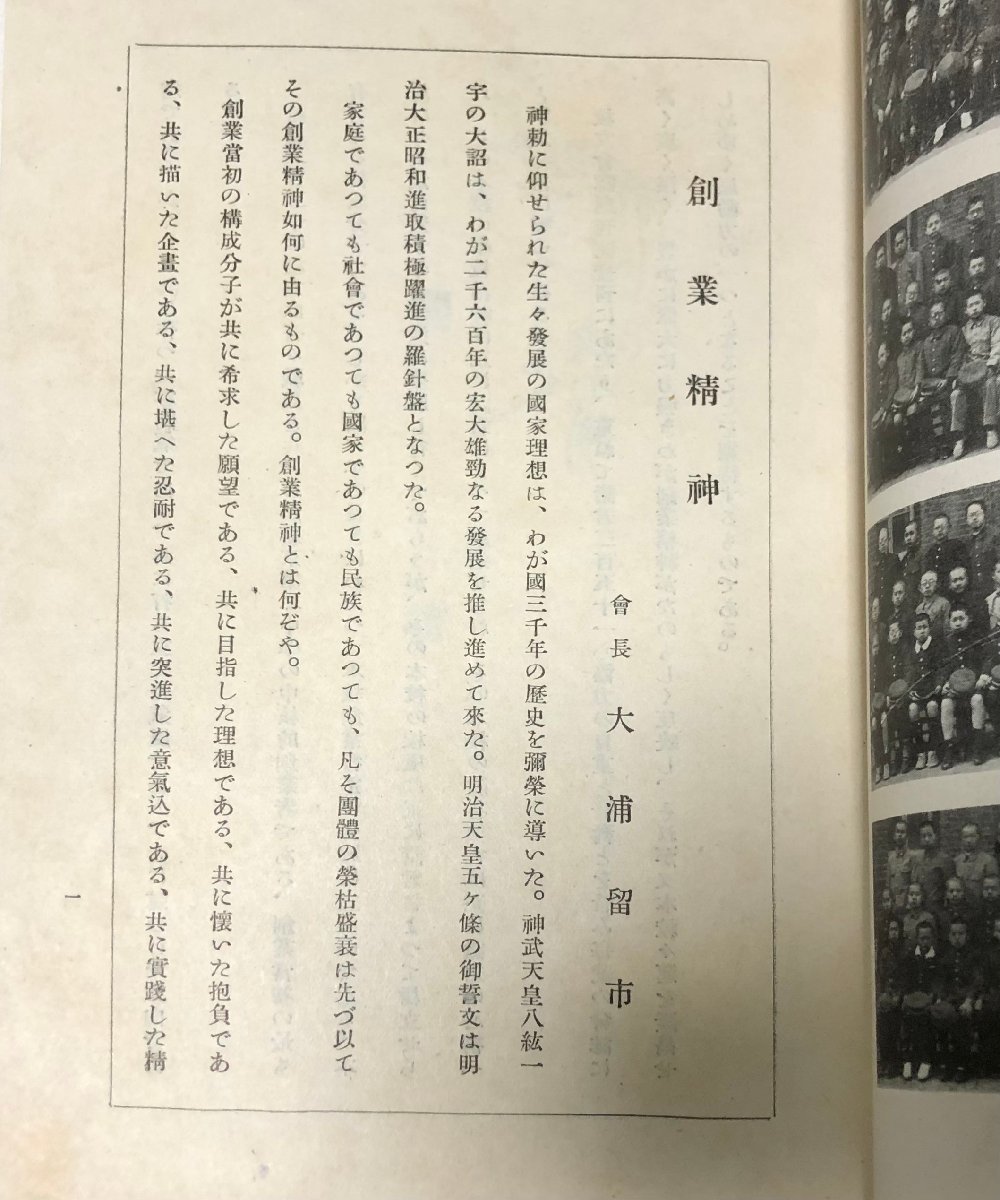 創業精神
會長 大浦留市
神勅に仰せられた生々發展の國家理想は、わが國三千年の歴史を彌榮に導いた。神武天皇八紘一
宇の大詔は、わが二千六百年の宏大雄勁なる發展を推し進めて來た。明治天皇五ヶ條の御誓文は明
治大正昭和進取積極躍進の羅針盤となつた。
家庭であつても社會であつても國家であつても民族であつても、凡そ團體の榮枯盛衰は先づ以て
その創業精神如何に由るものである。創業精神とは何ぞや。
創業當初の構成分子が共に希求した願望である、共に目指した理想である、共に懷いた抱負であ
る、共に描いた企畫である、共に堪へた忍耐である、共に突進した意氣込である、共に實踐した精
一